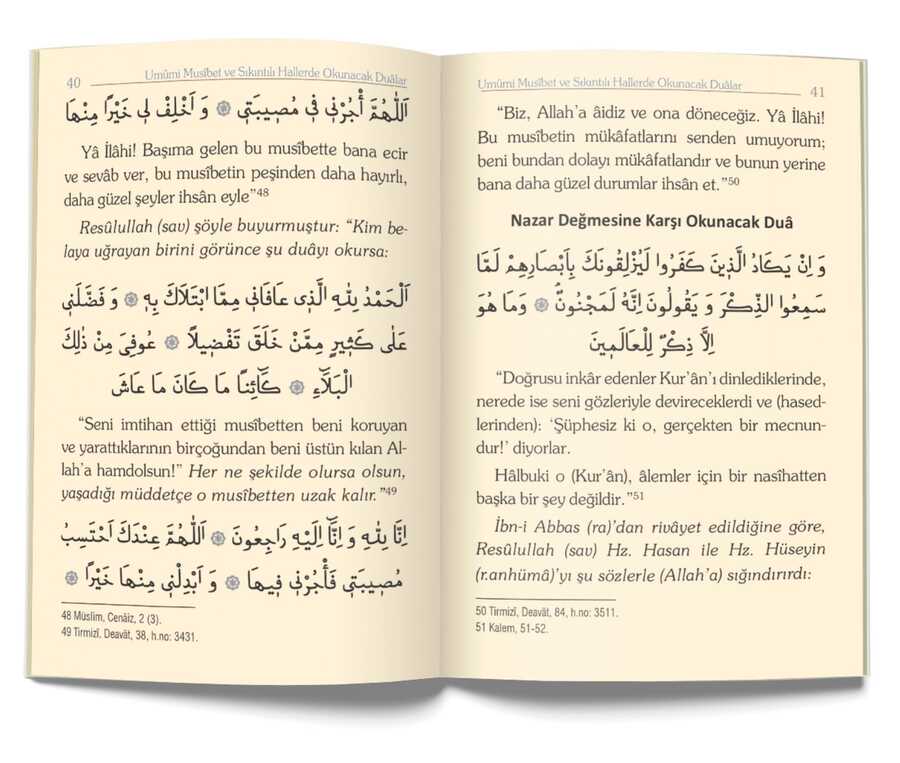 40
Umûmi Musîbet ve Sıkıntılı Hallerde Okunacak Duâlar
اَللّٰهُمَّ أْجُرْنٖي فٖي مُصٖيبَتٖي ۞ وَ اَخْلِفْ لٖي خَيْرًا مِنْهَا
Yâ İlâhi! Başıma gelen bu musîbette bana ecir
ve sevâb ver, bu musîbetin peşinden daha hayırlı,
daha güzel şeyler ihsân eyle”48
Resûlullah (sav) şöyle buyurmuştur: “Kim be-
laya uğrayan birini görünce şu duâyı okursa:
اَلْحَمْدُ لِلّٰهِ الَّذٖي عَافَانٖي مِمَّا ابْتَلَاكَ بِهٖ ۞ وَ فَضَّلَنٖي
عَلٰى كَثٖيرٍ مِمَّنْ خَلَقَ تَفْضٖيلًا ۞ عُوفِيَ مِنْ ذٰلِكَ
الْبَلَآءِ ۞ كَآئِنًا مَا كَانَ مَا عَاشَ
“Seni imtihan ettiği musîbetten beni koruyan
ve yarattıklarının birçoğundan beni üstün kılan Al-
lah’a hamdolsun!” Her ne şekilde olursa olsun,
yaşadığı müddetçe o musîbetten uzak kalır.”49
اِنَّا لِلّٰهِ وَ اِنَّآ اِلَيْهِ رَاجِعُونَ ۞ اَللّٰهُمَّ عِنْدَكَ اَحْتَسِبُ
مُصٖيبَتٖي فَأْجُرْنٖي فٖيهَا ۞ وَ اَبْدِلْنٖي مِنْهَا خَيْرًا ۞
48 Müslim, Cenâiz, 2 (3).
49 Tirmizî, Deavât, 38, h.no: 3431.
Umûmi Musîbet ve Sıkıntılı Hallerde Okunacak Duâlar
41
“Biz, Allah’a âidiz ve ona döneceğiz. Yâ İlâhi!
Bu musîbetin mükâfatlarını senden umuyorum;
beni bundan dolayı mükâfatlandır ve bunun yerine
bana daha güzel durumlar ihsân et.”50
Nazar Değmesine Karşı Okunacak Duâ
وَ اِنْ يَكَادُ الَّذٖينَ كَفَرُوا لَيُزْلِقُونَكَ بِاَبْصَارِهِمْ لَمَّا
سَمِعُوا الذِّكْرَ وَ يَقُولُونَ اِنَّهُ لَمَجْنُونٌ ۞ وَمَا هُوَ
اِلَّا ذِكْرٌ لِلْعَالَمٖينَ
“Doğrusu inkâr edenler Kur’ân’ı dinlediklerinde,
nerede ise seni gözleriyle devireceklerdi ve (hased-
lerinden): ‘Şüphesiz ki o, gerçekten bir mecnun-
dur!’ diyorlar.
Hâlbuki o (Kur’ân), âlemler için bir nasîhatten
başka bir şey değildir.”51
İbn-i Abbas (ra)’dan rivâyet edildiğine göre,
Resûlullah (sav) Hz. Hasan ile Hz. Hüseyin
(r.anhümâ)’yı şu sözlerle (Allah’a) sığındırırdı:
50 Tirmizî, Deavât, 84, h.no: 3511.
51 Kalem, 51-52.